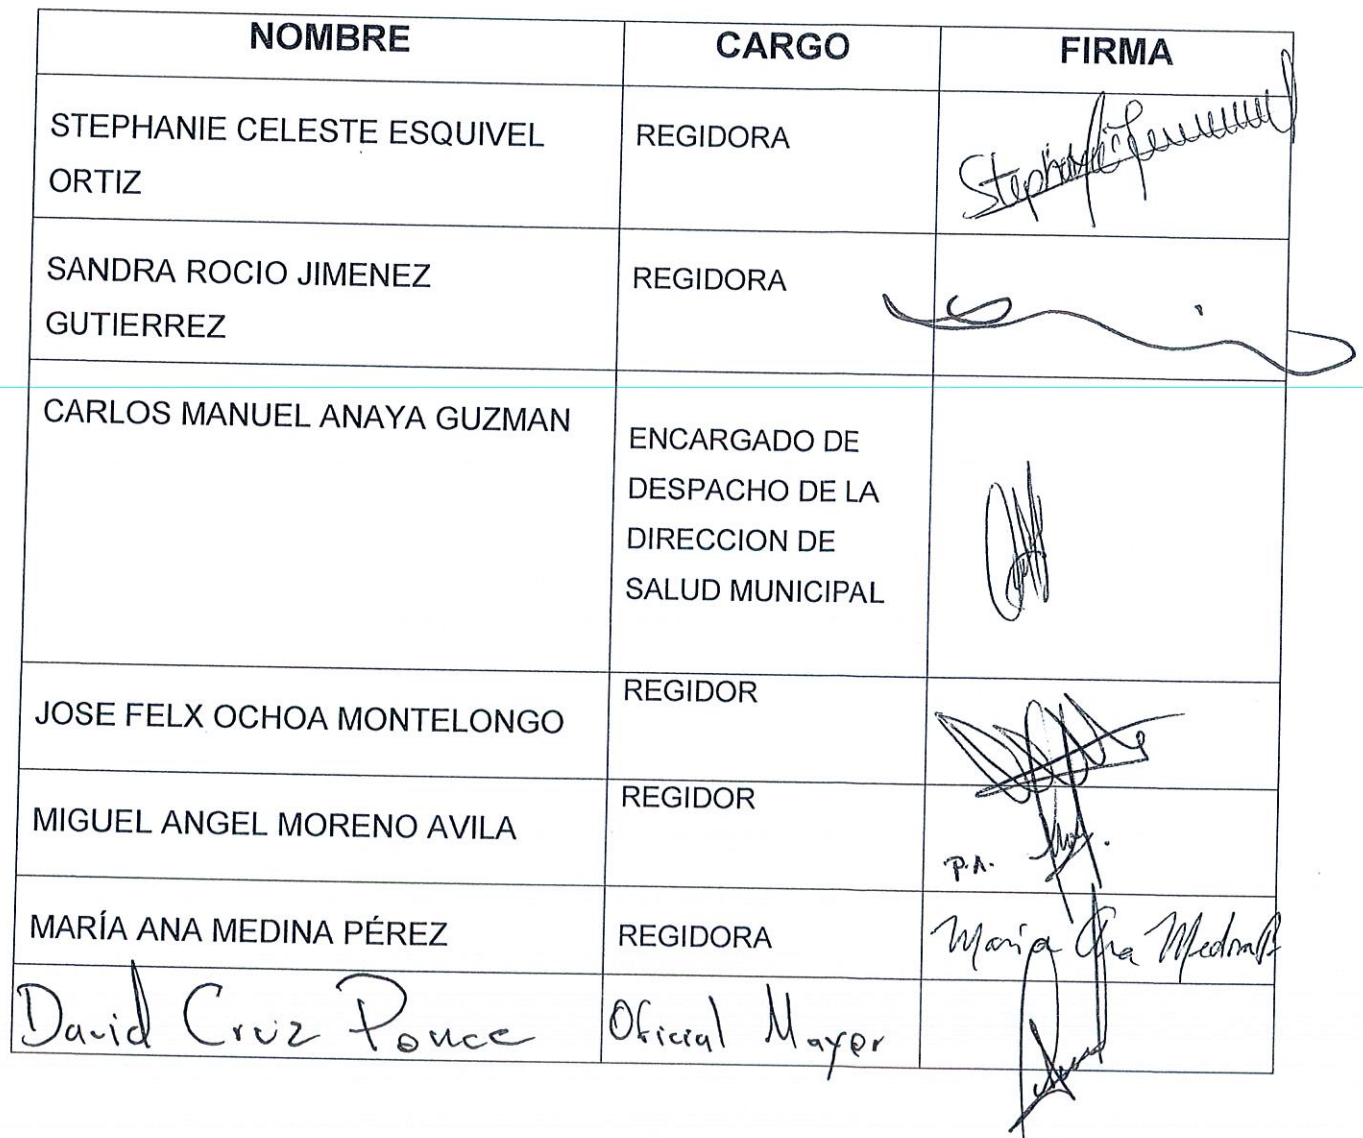 NOMBRE CARGO FIRMA
STEPHANIE CELESTE ESQUIVEL REGIDORA
ORTIZ
Stephanie
SANDRA ROCIO JIMENEZ REGIDORA
GUTIERREZ
CARLOS MANUEL ANAYA GUZMAN
ENCARGADO DE
DESPACHO DE LA
DIRECCION DE
SALUD MUNICIPAL
JOSE FELX OCHOA MONTELONGO REGIDOR
MIGUEL ANGEL MORENO AVILA REGIDOR
P.A.
MARÍA ANA MEDINA PÉREZ REGIDORA Maria Ana Medina P
David Cruz Ponce Oficial Mayor